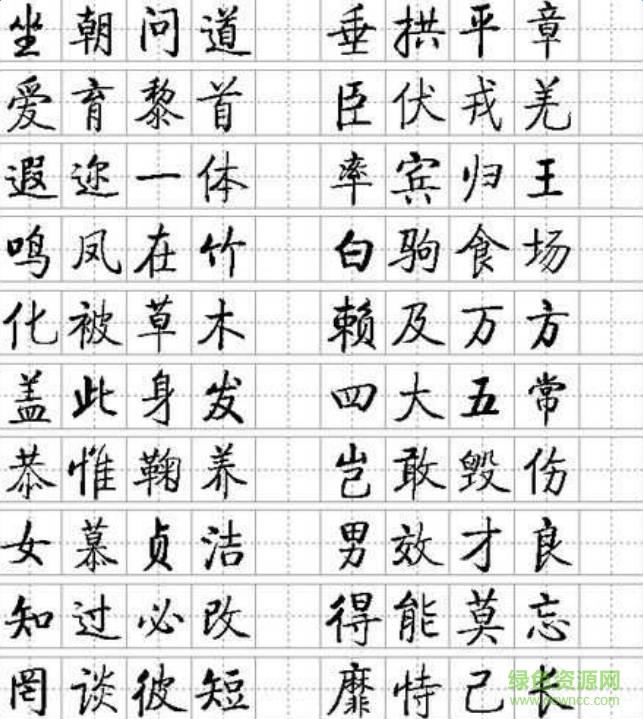 坐朝问道 垂拱平章
爱育黎首 臣伏戎羌
遐迩一体 率宾归王
鸣凤在竹 白驹食场
化被草木 赖及万方
盖此身发 四大五常
恭惟鞠养 岂敢毁伤
女慕贞洁 男效才良
知过必改 得能莫忘
罔谈彼短 靡恃己长
绿色资源网
www.downcc.com